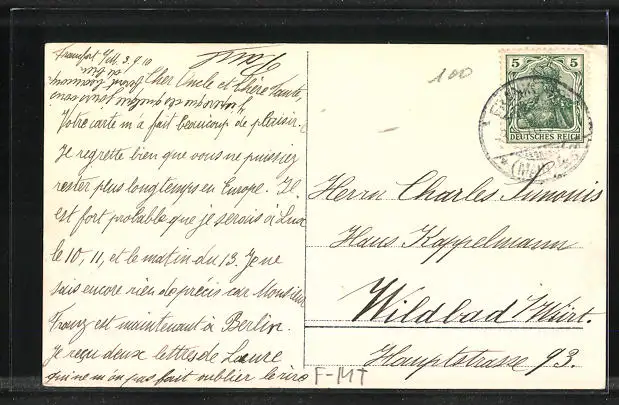 Francfort s/M. 3.9.10
Cher Oncle et Chère Tante,
Votre carte m'a fait beaucoup de plaisir.
Je regrette bien que vous ne puissiez
rester plus longtemps en Europe. Il
est fort probable que je serais à Lux
le 10, 11, et le matin du 13. Je ne
sais encore rien de précis car Monsieur
Franz est maintenant à Berlin.
Je reçu deux lettres de Laure
qui ne m'on pas fait oublier le rire
100
5 5
DEUTSCHES REICH
Herrn Charles Simonis
Haus Kappelmann
Wildbad /Würt.
Hauptstrasse 93.
F-MT